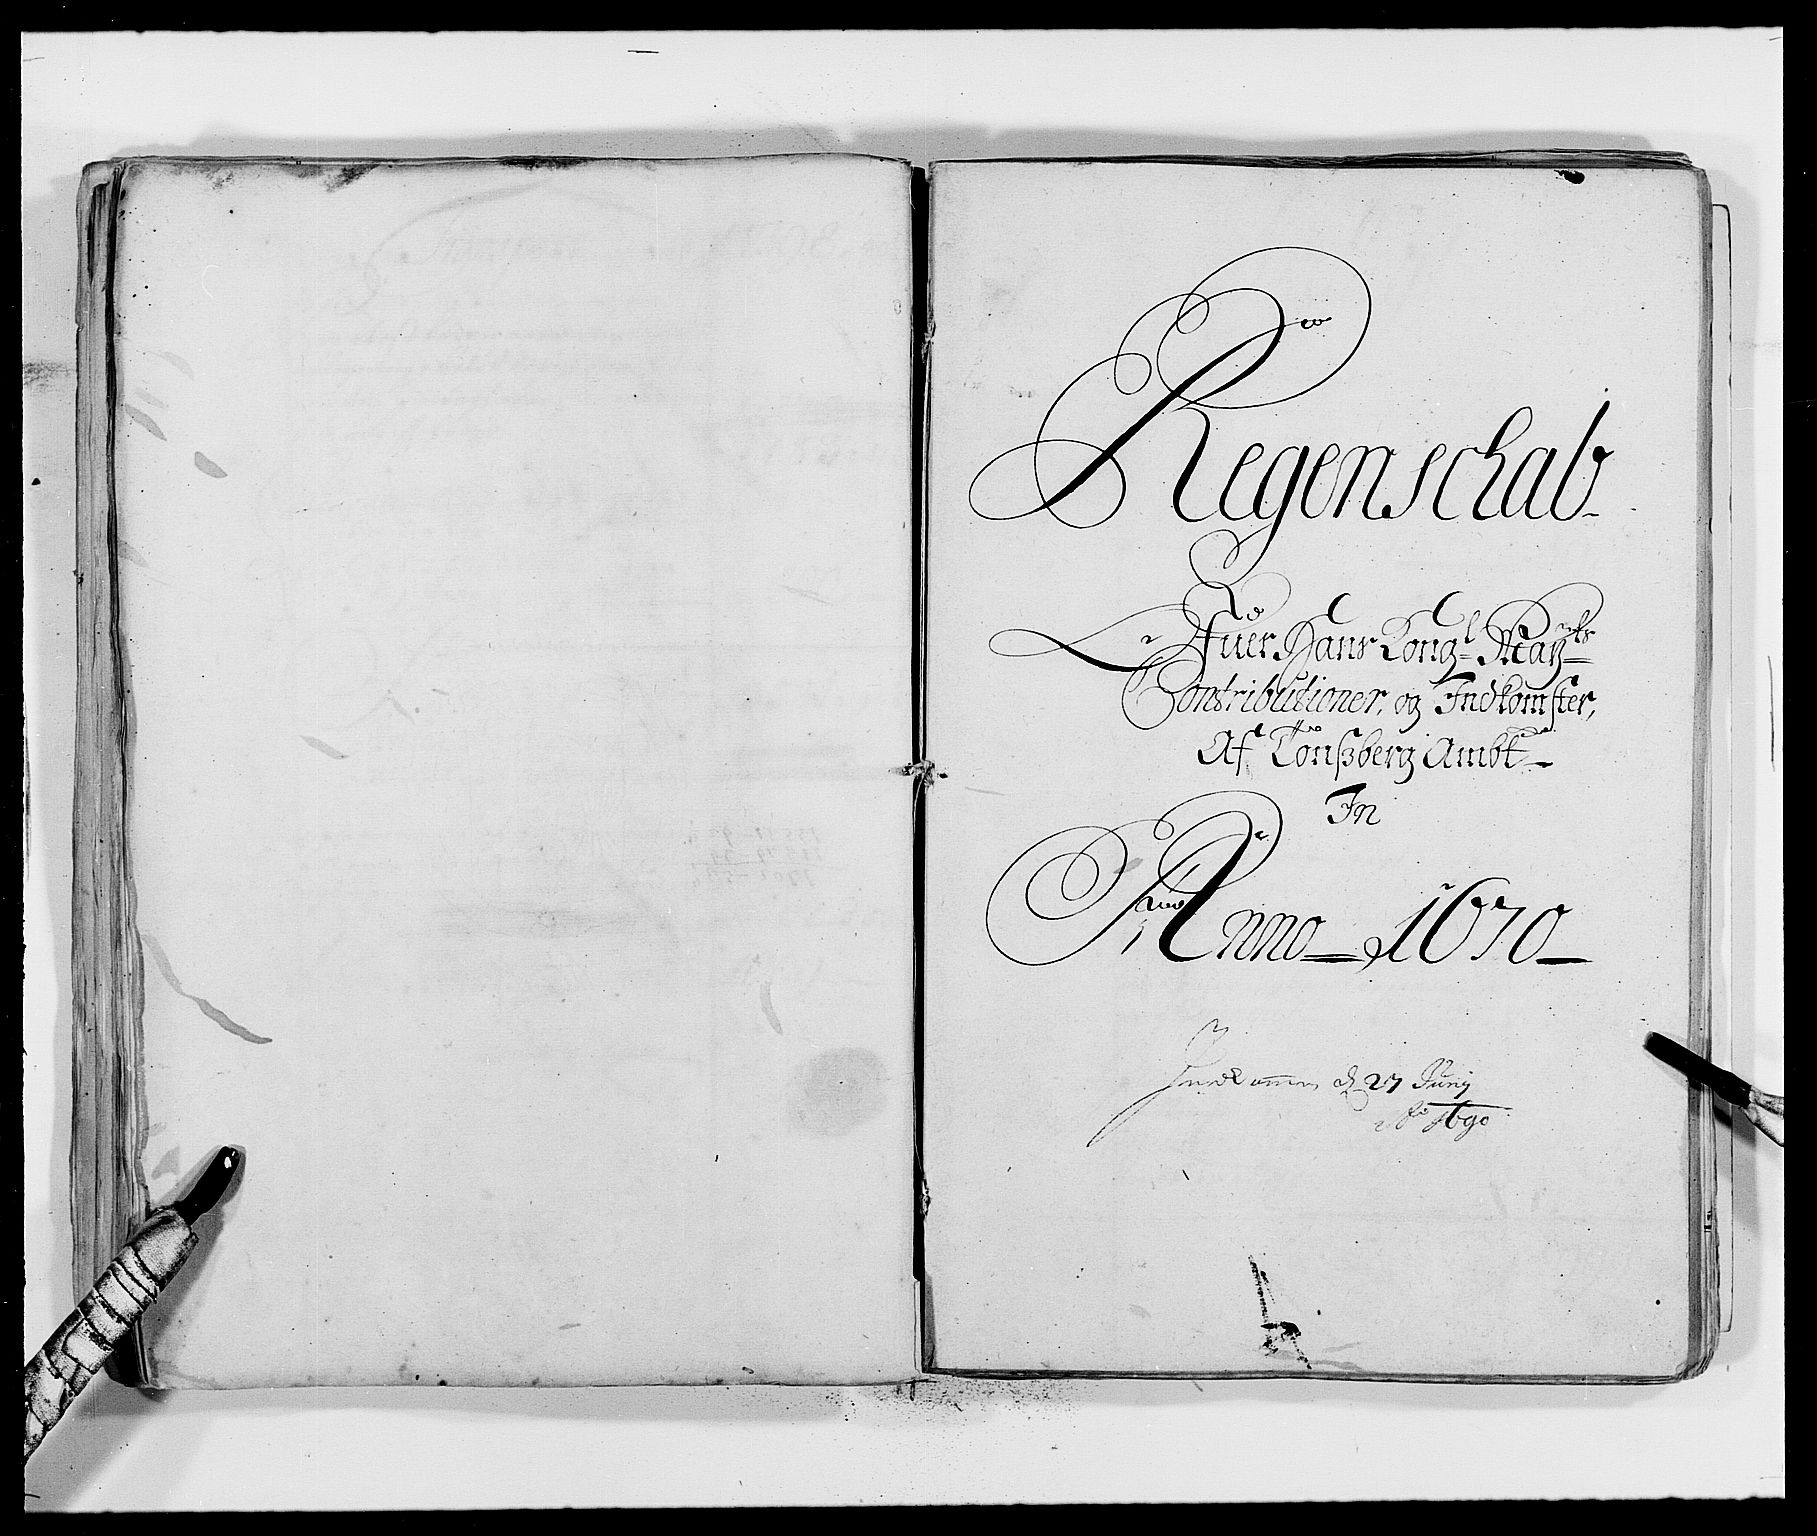 Regenschab
Ofuer Hans Kongl Mayts
Contributioner, og Indkomster,
Af Tønßberg Ambt
In
Anno 1670
Indkommen d 27 Junij
Ao 1690